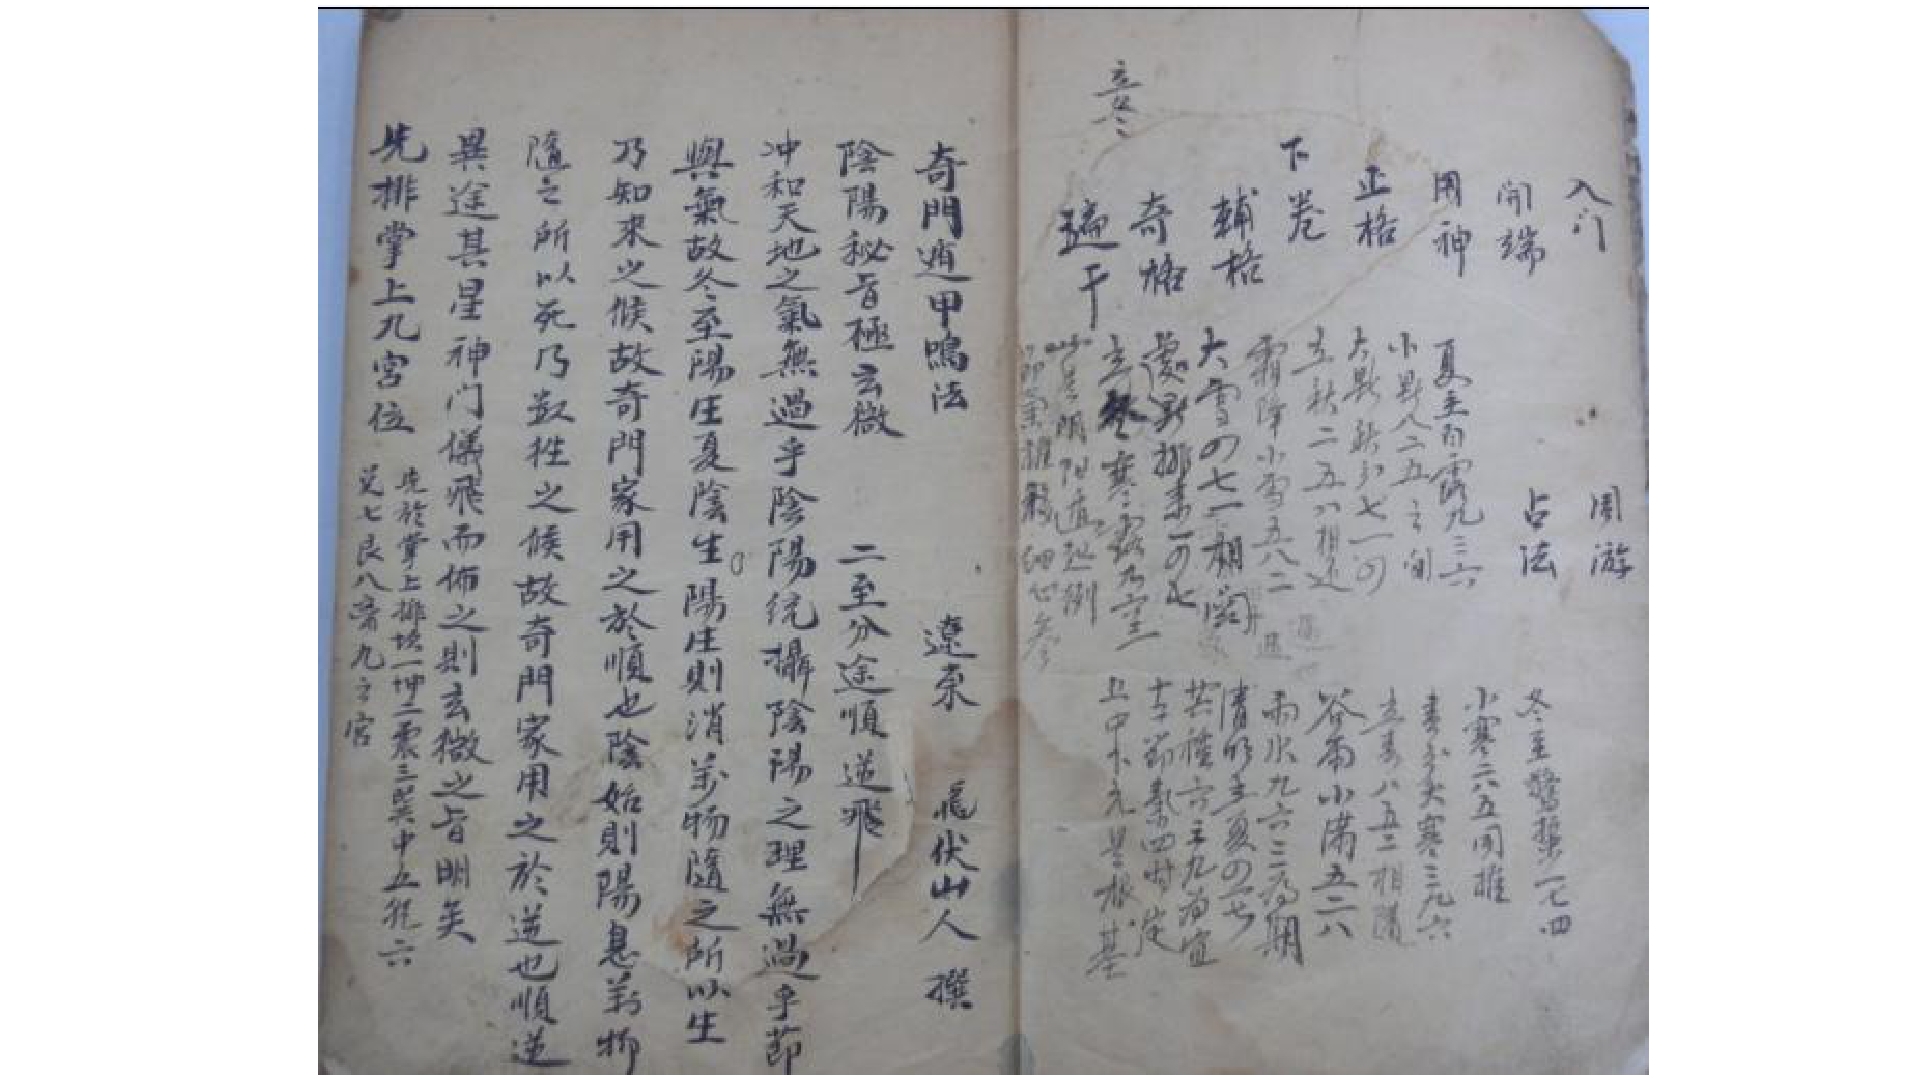 入门
周游
開端
占法
用神
正格
下卷
輔格
奇格
立冬
夏至白露九三六
小暑八二五之间
大暑秋分七一四
立秋二五八相还
霜降小雪五八二
大雪四七一相関
處暑排来一四七
立冬寒露九六三
此是陰陽遁起例
節氣推移細心参
冬至驚蟄一七四
小寒二八五同推
春分大寒三九六
立春八五二相随
谷雨小满五二八
雨水九六三为期
清明立夏四一七
芒種六三九为宜
十二節氣四时定
上中下元是根基
奇門遁甲鳴法 遼東 龍伏山人 撰
陰陽秘旨極玄微 二至分途順逆飛
冲和天地之氣無過乎陰陽统攝陰陽之理無過乎節
與氣故冬至陽庄夏陰生陽庄則消萬物隨之所以生
乃知來之候故奇門家用之於順也陰始則陽息萬物
隨之所以死乃数往之候故奇門家用之於逆也順逆
異途其星神门儀飛而佈之則玄微之旨明矣
先排掌上九宮位
先於掌上排坎一坤二震三巽中五乾六
兌七艮八离九之宮